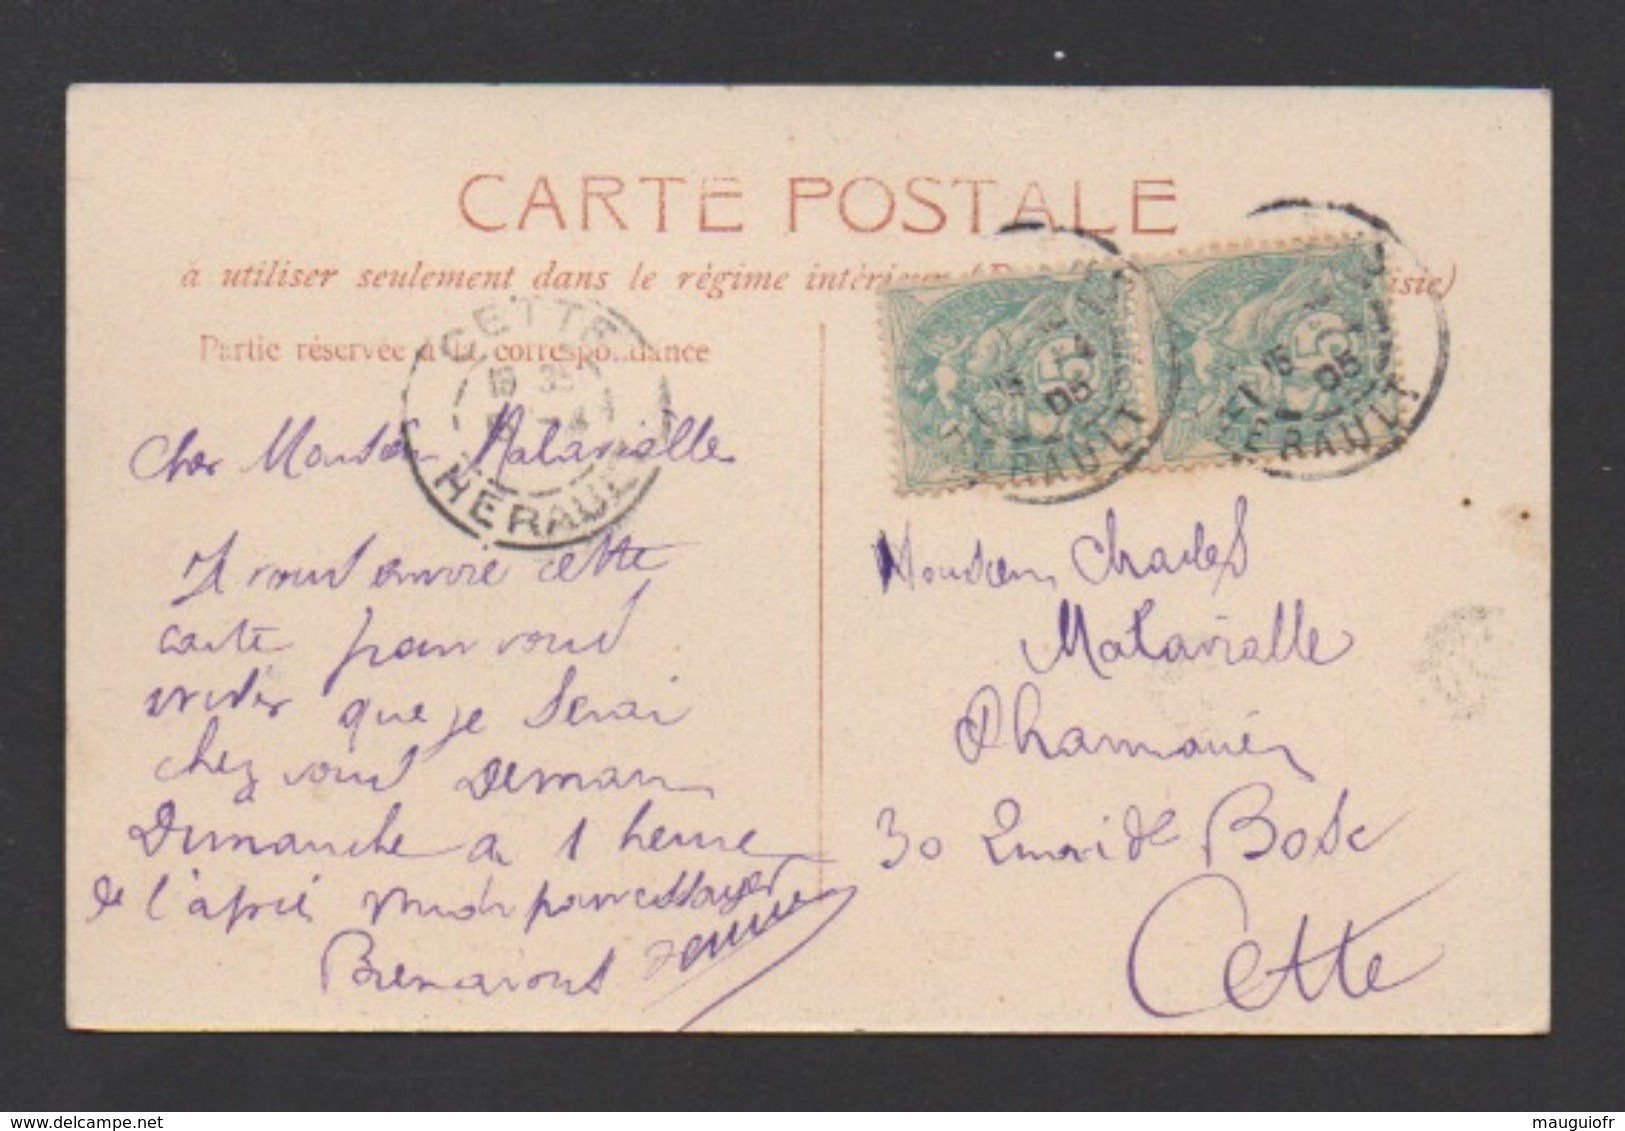 CARTE POSTALE
à utiliser seulement dans le régime intérieur
isie)
Partie réservée à la correspondance
CETTE
HERAULT
05
HERAULT
05
HERAULT
5
5
Cher Monsieur Malavialle
Je vous envoie cette
carte pour vous
que je serai
chez vous Demain
Dimanche a 1 heure
de l'après midi pour essayer
Monsieur Charles
Malavialle
Pharmacien
30 Quai de Bosc
Cette
mauguiofr